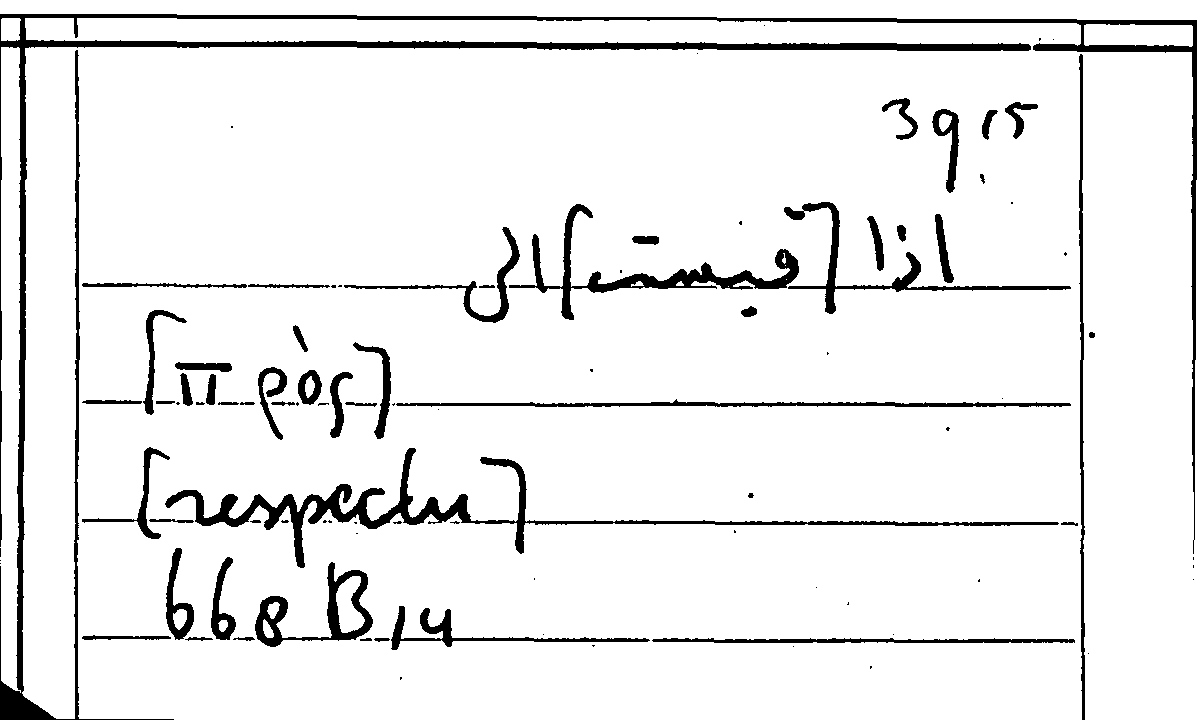 39 15
اذا [قيست] الى
[πρὸς]
[respectu]
668 B 14